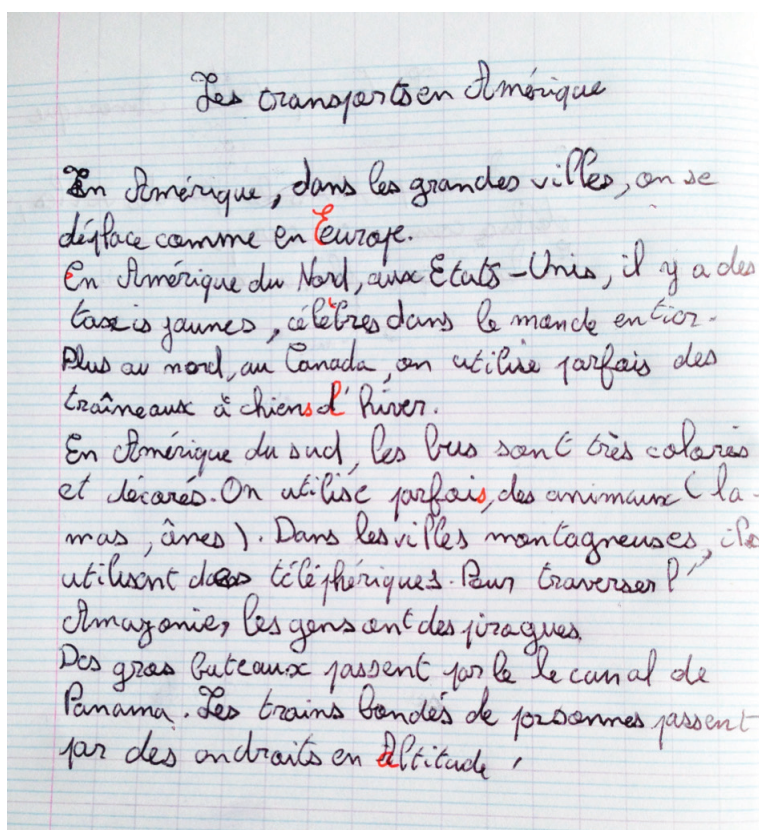 Les transports en Amérique
En Amérique, dans les grandes villes, on se
déplace comme en Europe.
En Amérique du Nord, aux Etats-Unis, il y a des
taxis jaunes, célèbres dans le monde entier.
Plus au nord, au Canada, on utilise parfois des
traîneaux à chiens l'hiver.
En Amérique du sud, les bus sont très colorés
et décorés. On utilise parfois, des animaux (la-
mas, ânes). Dans les villes montagneuses, ils
utilisent des téléphériques. Pour traverser l'
Amazonie, les gens ont des pirogues.
Des gros bateaux passent par le le canal de
Panama. Les trains bondés de personnes passent
par des endroits en altitude.